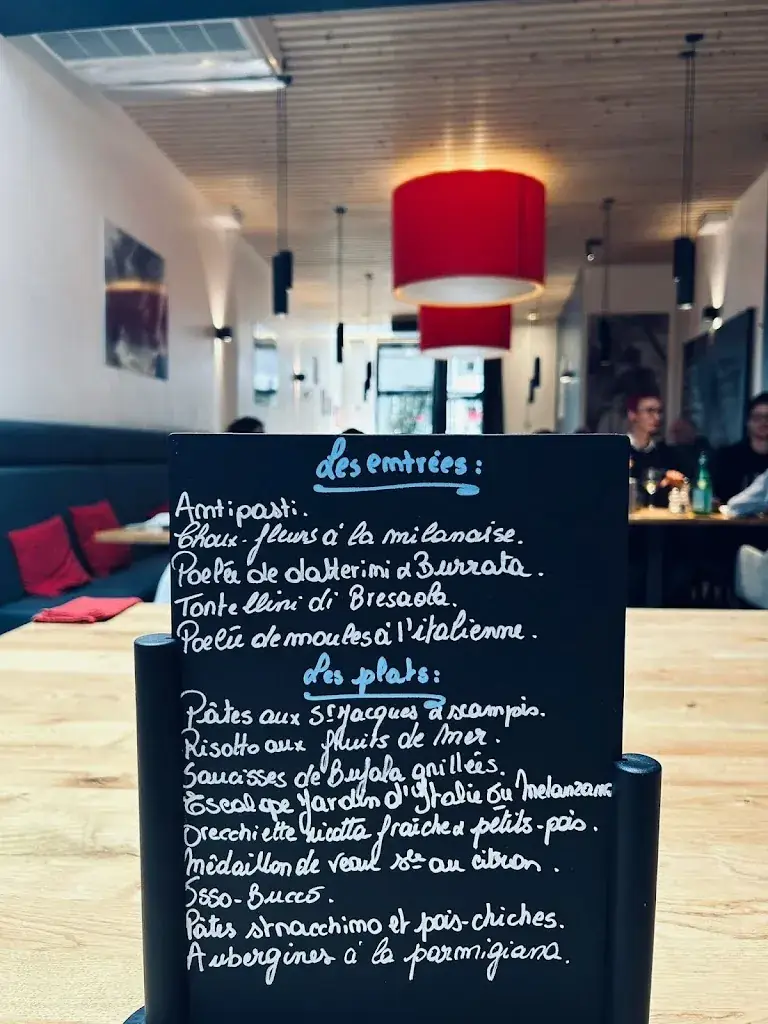 Les entrées :
Antipasti.
Choux-fleurs à la milanaise.
Poelée de datterini & Burrata.
Tortellini di Bresaola.
Poelée de moules à l'italienne.
Les plats :
Pâtes aux St Jacques & scampis.
Risotto aux fruits de mer.
Saucisses de Bufala grillées.
Escalope Jardin d'Italie ou Melanzana
Orecchiette ricotta fraîche & petits-pois.
Médaillon de veau sce au citron.
Osso-Bucco.
Pâtes stracchino et pois-chiches.
Aubergines à la parmigiana.